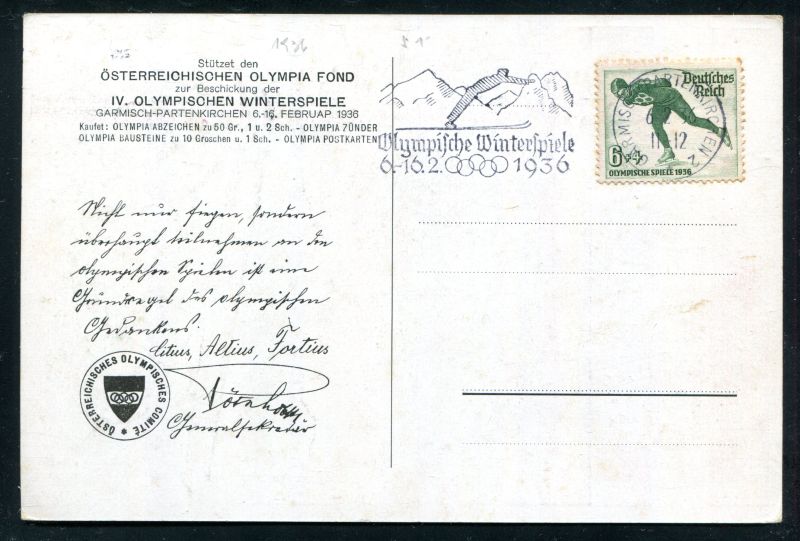 1936
Stützet den
ÖSTERREICHISCHEN OLYMPIA FOND
zur Beschickung der
IV. OLYMPISCHEN WINTERSPIELE
GARMISCH-PARTENKIRCHEN 6.-16. FEBRUAR 1936
Kaufet: OLYMPIA ABZEICHEN zu 50 Gr., 1 u. 2 Sch. - OLYMPIA ZÜNDER
OLYMPIA BAUSTEINE zu 10 Groschen u. 1 Sch. - OLYMPIA POSTKARTEN
Olympische Winterspiele
6.-16.2. 1936
Deutsches
Reich
6+4
OLYMPISCHE SPIELE 1936
GARMISCH-PARTENKIRCHEN 2
11-12
Nicht nur siegen, sondern
überhaupt teilnehmen an den
olympischen Spielen ist eine
Grundregel des olympischen
Gedankens.
Citius, Altius, Fortius
ÖSTERREICHISCHES OLYMPISCHES COMITÉ *
Generalsekretär